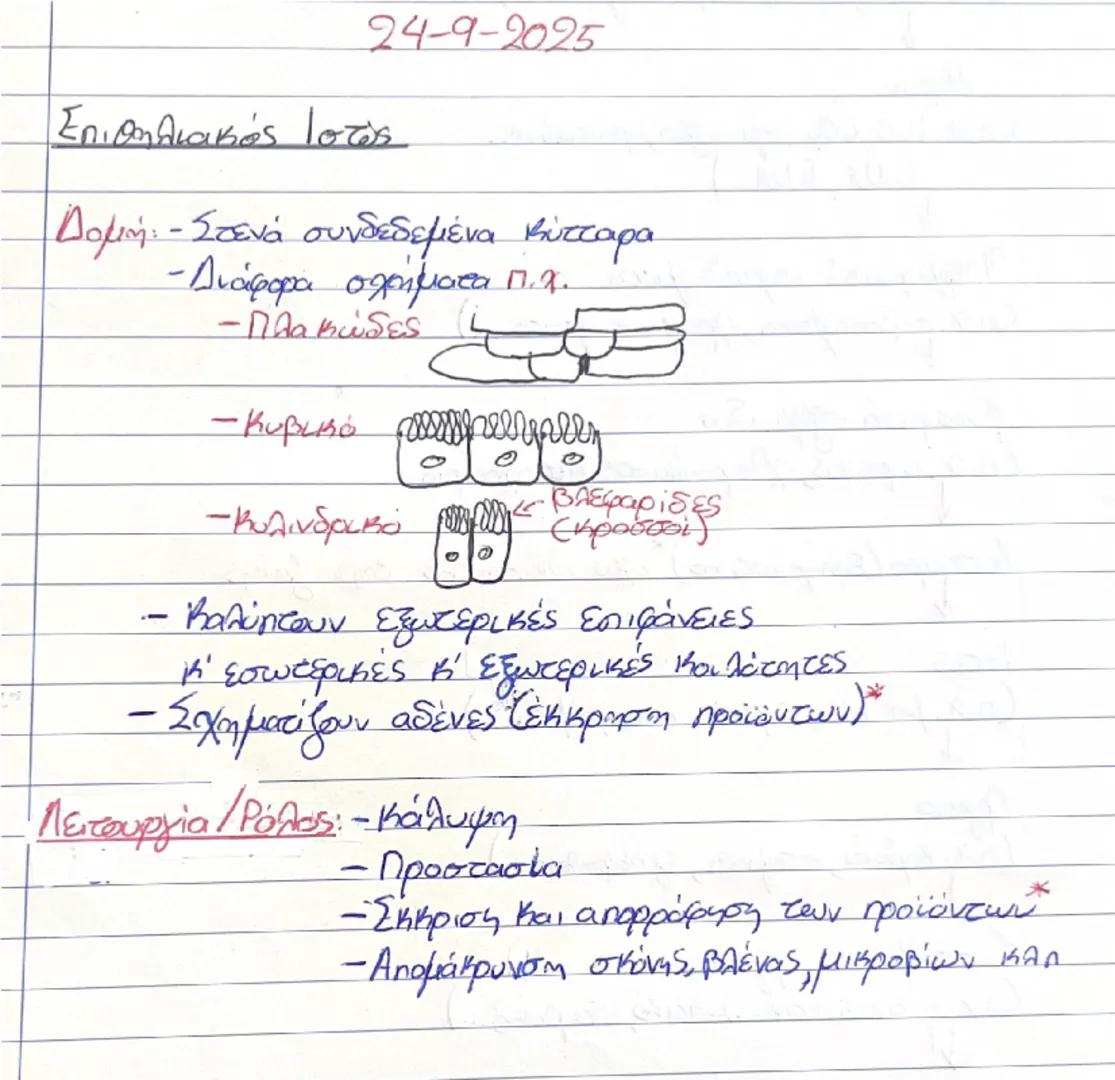 24-9-2025
Επιθηλιακός Ιστός
Δομή: - Στενά συνδεδεμένα κύτταρα
- Διάφορα σχήματα π.χ.
- Πλακώδες
- Κυβικό
- Κυλινδρικό
← Βλεφαρίδες
(κροσσοί)
- Καλύπτουν εξωτερικές επιφάνειες
κ' εσωτερικές κ' εξωτερικές κοιλότητες
- Σχηματίζουν αδένες (έκκρηση προϊόντων)*
Λειτουργία/Ρόλος: - Κάλυψη
- Προστασία
- Έκκριση και απορρόφηση των προϊόντων*
- Απομάκρυνση σκόνης, βλένας, μικροβίων κλπ